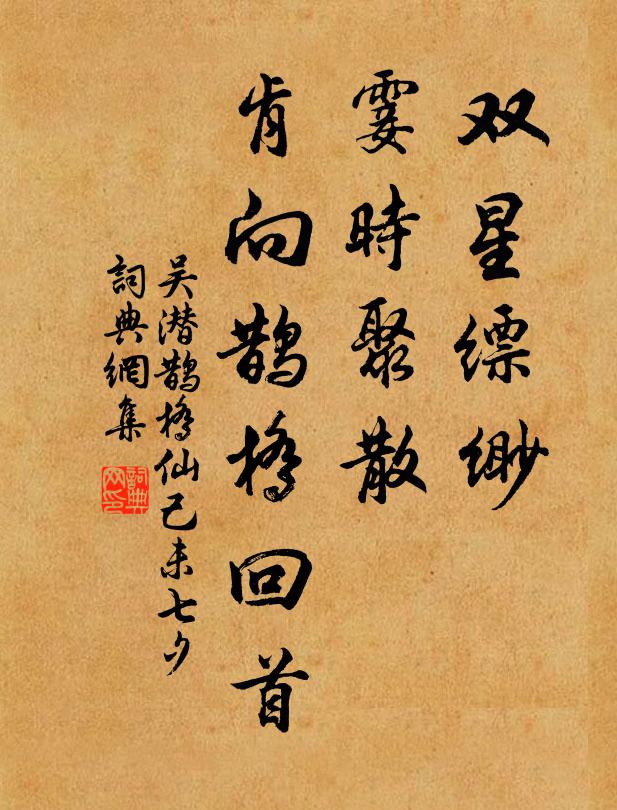 双星缥缈
霎時聚散
肯向鵲橋回首
吴潜鵲橋仙己未七夕
詞典網集
詞典
网印